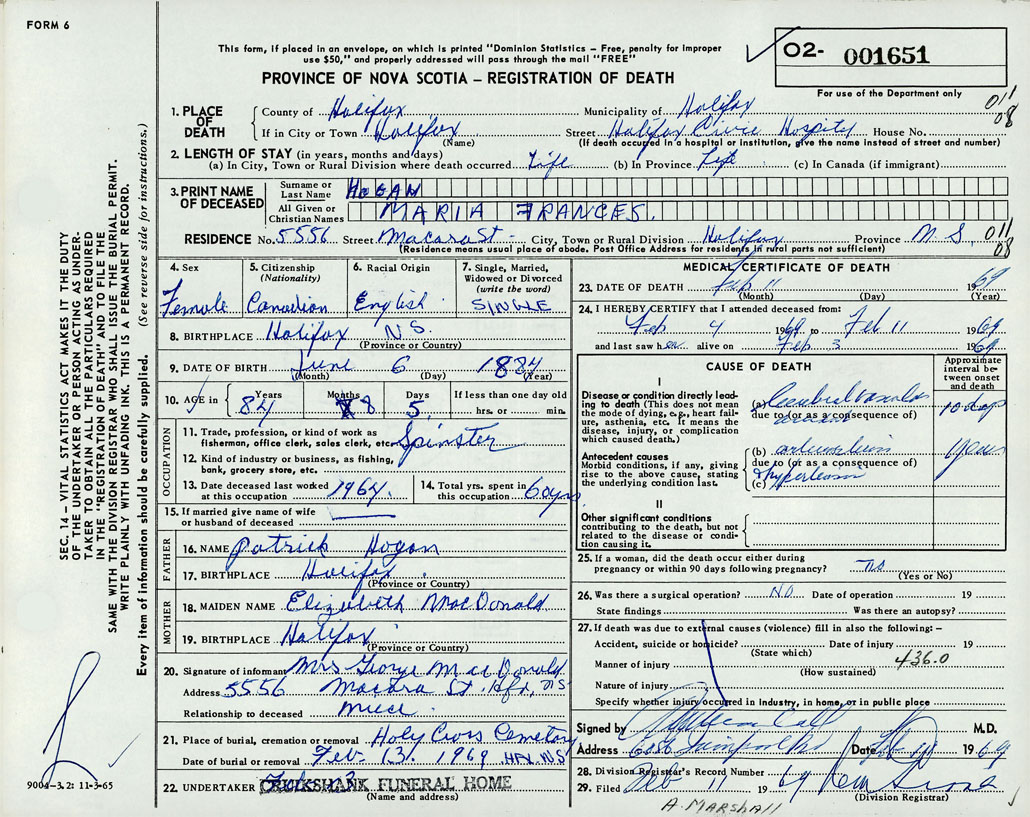 FORM 6
This form, if placed in an envelope, on which is printed "Dominion Statistics – Free, penalty for improper
use $50," and properly addressed will pass through the mail "FREE"
PROVINCE OF NOVA SCOTIA – REGISTRATION OF DEATH
02- 001651
For use of the Department only
011
08
1. PLACE OF DEATH
County of Halifax Municipality of Halifax
If in City or Town Halifax Street Halifax Civic Hospital House No.
(Name) (If death occurred in a hospital or institution, give the name instead of street and number)
2. LENGTH OF STAY (in years, months and days)
(a) In City, Town or Rural Division where death occurred Life (b) In Province Life (c) In Canada (if immigrant)
3. PRINT NAME OF DECEASED
Surname or Last Name HOGAN
All Given or Christian Names MARIA FRANCES.
RESIDENCE No. 5556 Street Macara St - City, Town or Rural Division Halifax Province N.S. 011
08
(Residence means usual place of abode. Post Office Address for residents in rural parts not sufficient)
4. Sex
Female
5. Citizenship (Nationality)
Canadian
6. Racial Origin
English
7. Single, Married, Widowed or Divorced (write the word)
SINGLE
8. BIRTHPLACE Halifax N.S.
(Province or Country)
9. DATE OF BIRTH June 6 1884
(Month) (Day) (Year)
10. AGE in Years Months Days If less than one day old
84 8 5 hrs. or min.
OCCUPATION
11. Trade, profession, or kind of work as
fisherman, office clerk, sales clerk, etc. Spinster
12. Kind of industry or business, as fishing,
bank, grocery store, etc.
13. Date deceased last worked
at this occupation 1964
14. Total yrs. spent in
this occupation 60 yrs
15. If married give name of wife
or husband of deceased
FATHER
16. NAME Patrick Hogan
17. BIRTHPLACE Halifax
(Province or Country)
MOTHER
18. MAIDEN NAME Elizabeth MacDonald
19. BIRTHPLACE Halifax
(Province or Country)
20. Signature of informant Mrs George MacDonald
Address 5556 Macara St. Hfx, NS
Relationship to deceased niece
21. Place of burial, cremation or removal Holy Cross Cemetery
Date of burial or removal Feb 13, 1969 HFX N.S
22. UNDERTAKER CRUIKSHANK FUNERAL HOME
(Name and address)
MEDICAL CERTIFICATE OF DEATH
23. DATE OF DEATH Feb 11 1969
(Month) (Day) (Year)
24. I HEREBY CERTIFY that I attended deceased from:
Feb 4 1969 to Feb 11 1969
and last saw her alive on Feb 3 1969
CAUSE OF DEATH
Approximate interval between onset and death
I
Disease or condition directly leading to death (This does not mean the mode of dying, e.g., heart failure, asthenia, etc. It means the disease, injury, or complication which caused death.)
(a) Cerebral vascular
due to (or as a consequence of)
10 days
Antecedent causes
Morbid conditions, if any, giving rise to the above cause, stating the underlying condition last.
(b)
due to (or as a consequence of)
years
(c)
II
Other significant conditions
contributing to the death, but not related to the disease or condition causing it.
25. If a woman, did the death occur either during
pregnancy or within 90 days following pregnancy? no
(Yes or No)
26. Was there a surgical operation? NO Date of operation 19
State findings Was there an autopsy?
27. If death was due to external causes (violence) fill in also the following: –
Accident, suicide or homicide? Date of injury 19
(State which)
Manner of injury 436.0
(How sustained)
Nature of injury
Specify whether injury occurred in industry, in home, or in public place
Signed by M.D.
Address Date Feb 1969
28. Division Registrar's Record Number
29. Filed Feb 11 1969
(Division Registrar)
A. MARSHALL
SEC. 14 – VITAL STATISTICS ACT MAKES IT THE DUTY
OF THE UNDERTAKER OR PERSON ACTING AS UNDER-
TAKER TO OBTAIN ALL THE PARTICULARS REQUIRED
IN THE "REGISTRATION OF DEATH" AND TO FILE THE
SAME WITH THE DIVISION REGISTRAR WHO SHALL ISSUE THE BURIAL PERMIT.
WRITE PLAINLY WITH UNFADING INK. THIS IS A PERMANENT RECORD.
Every item of information should be carefully supplied. (See reverse side for instructions.)
9004-3.2: 11-3-65